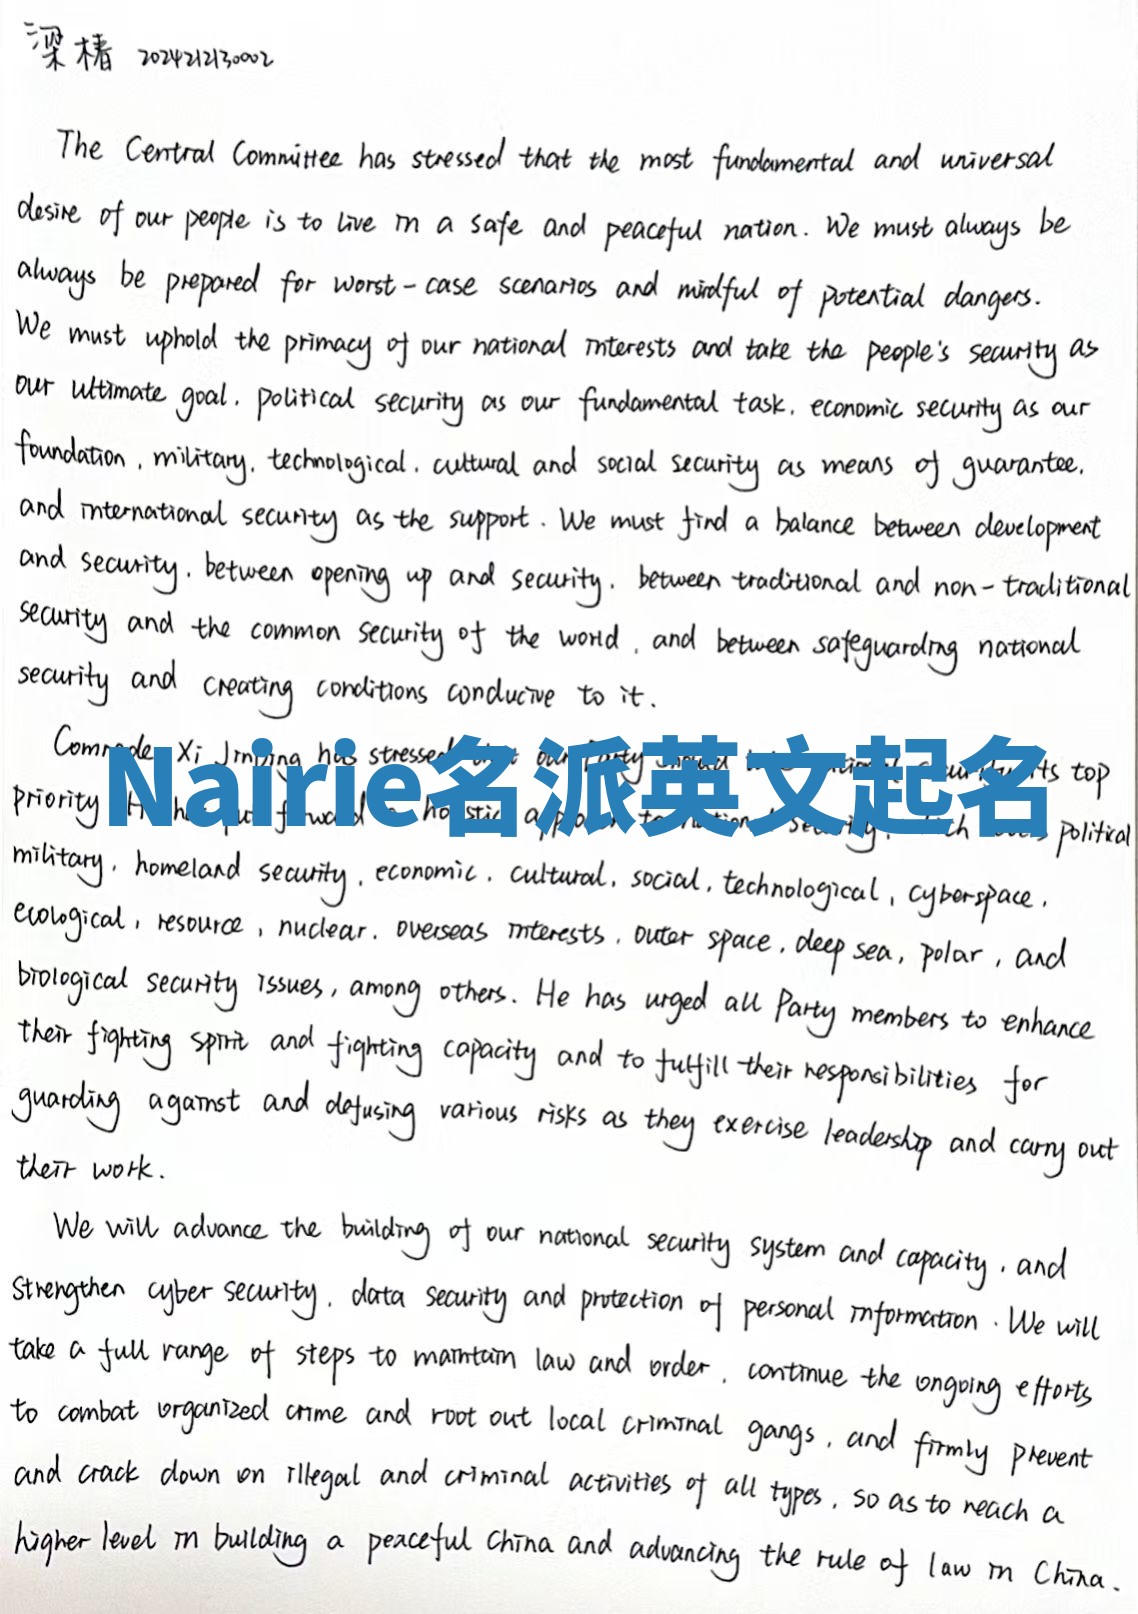 梁椿 2024212130002
The Central Committee has stressed that the most fundamental and universal
desire of our people is to live in a safe and peaceful nation. We must always be
always be prepared for worst-case scenarios and mindful of potential dangers.
We must uphold the primacy of our national interests and take the people's security as
our ultimate goal, political security as our fundamental task, economic security as our
foundation, military, technological, cultural and social security as means of guarantee,
and international security as the support. We must find a balance between development
and security, between opening up and security, between traditional and non-traditional
security and the common security of the world, and between safeguarding national
security and creating conditions conducive to it.
Comrade Xi Jinping has stressed our Party top
priority political
Nairie名派英文起名
military, homeland security, economic, cultural, social, technological, cyberspace,
ecological, resource, nuclear, overseas interests, outer space, deep sea, polar, and
biological security issues, among others. He has urged all Party members to enhance
their fighting spirit and fighting capacity and to fulfill their responsibilities for
guarding against and defusing various risks as they exercise leadership and carry out
their work.
We will advance the building of our national security system and capacity, and
strengthen cyber security, data security and protection of personal information. We will
take a full range of steps to maintain law and order, continue the ongoing efforts
to combat organized crime and root out local criminal gangs, and firmly prevent
and crack down on illegal and criminal activities of all types, so as to reach a
higher level in building a peaceful China and advancing the rule of law in China.